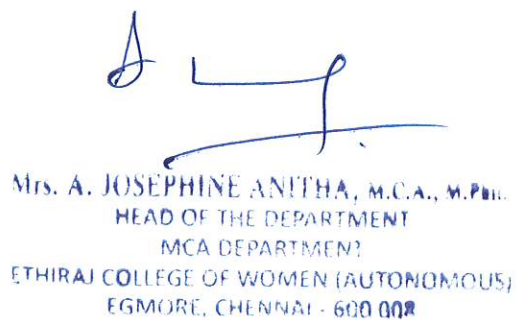 Mrs. A. JOSEPHINE ANITHA, M.C.A., M.Phil.
HEAD OF THE DEPARTMENT
MCA DEPARTMENT
ETHIRAJ COLLEGE OF WOMEN (AUTONOMOUS)
EGMORE, CHENNAI - 600 008